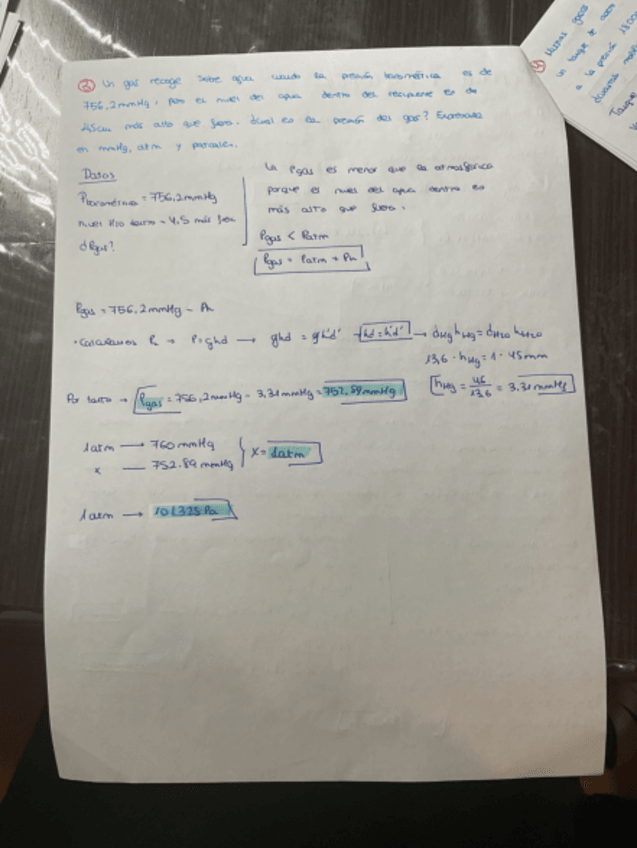 ② Un gas recoge sobre agua cuando la presión barométrica es de
756,2mmHg, pero el nivel del agua dentro del recipiente es de
más alto que fuera. ¿Cual es la presión del gas? Expresada
en mmHg, atm y pascales.
Datos
Pbarométrica = 756,2mmHg
nivel H2O dentro = 4.5 más
¿Pgas?
La Pgas es menor que la atmosférica
porque el nivel del agua dentro es
más alto que fuera.
Pgas < Patm
Pgas = Patm + Ph
Pgas = 756.2mmHg - Ph
·Calculamos Ph → P=ghd → ghd = gh'd' → hd=h'd' → dHg hHg = dH2O hH2O
13,6 · hHg = 1 · 45mm
hHg = 45/13,6 = 3.31mmHg
Por tanto → Pgas = 756,2mmHg - 3,31mmHg = 752.89mmHg
1atm → 760mmHg
x — 752.89mmHg } x = 1atm
1atm → 101325 Pa
④
gases
un tanque de
a la presión